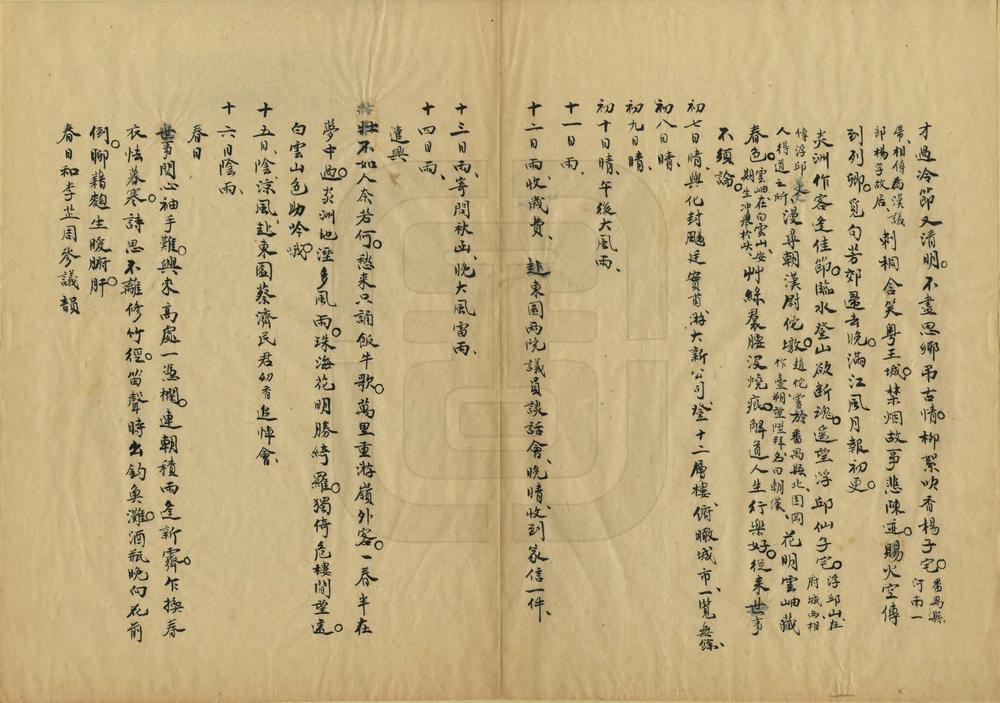 才過冷節又清明。不盡思鄉弔古情。柳絮吹香楊子宅。番禺縣河南一
帶相傳為漢議郎楊孚故居刺桐含笑粵王城。禁烟故事悲陳迹。賜火空傳
到列卿。覓句芳郊還去晚。滿江風月報初更。
炎洲作客逢佳節。臨水登山欲斷魂。遥望浮邱仙子宅。浮邱山在府城西相
傳浮邱丈人得道之所漫尋朝漢尉佗墩。趙佗嘗於番禺縣北固岡作臺朔望陞拜名曰朝漢、花明雲岫藏
春色。雲岫在白雲山安期生冲飛於此、艸綠裙腰沒燒痕。解道人生行樂好。從来世事
不須論。
初七日晴、與化封颺廷寶甫游大新公司、登十二層樓、俯瞰城市、一覽無餘、
初八日晴、
初九日晴、
初十日晴、午後大風雨、
十一日雨、
十二日雨、收歲費、赴東園两院議員談話會、晚晴、收到家信一件、
十三日雨、寄閏秋函、晚大風雷雨、
十四日雨、
遣興
壯不如人奈若何。愁来只誦飯牛歌。萬里重游嶺外客。一春半在
夢中過。炎洲地溼多風雨。珠海花明勝綺羅。獨倚危樓閒望遠。
白雲山色助吟哦。
十五日、陰涼風、赴東園蔡濟民君幼香追悼會、
十六日陰雨、
春日
世事関心袖手難。興來高處一憑欄。連朝積雨逢新霽。乍換春
衣怯暮寒。詩思不離修竹徑。笛聲時出釣魚灘。酒瓶晚向花前
倒。聊藉麹生暖腑肝。
春日和李芷周參議韻